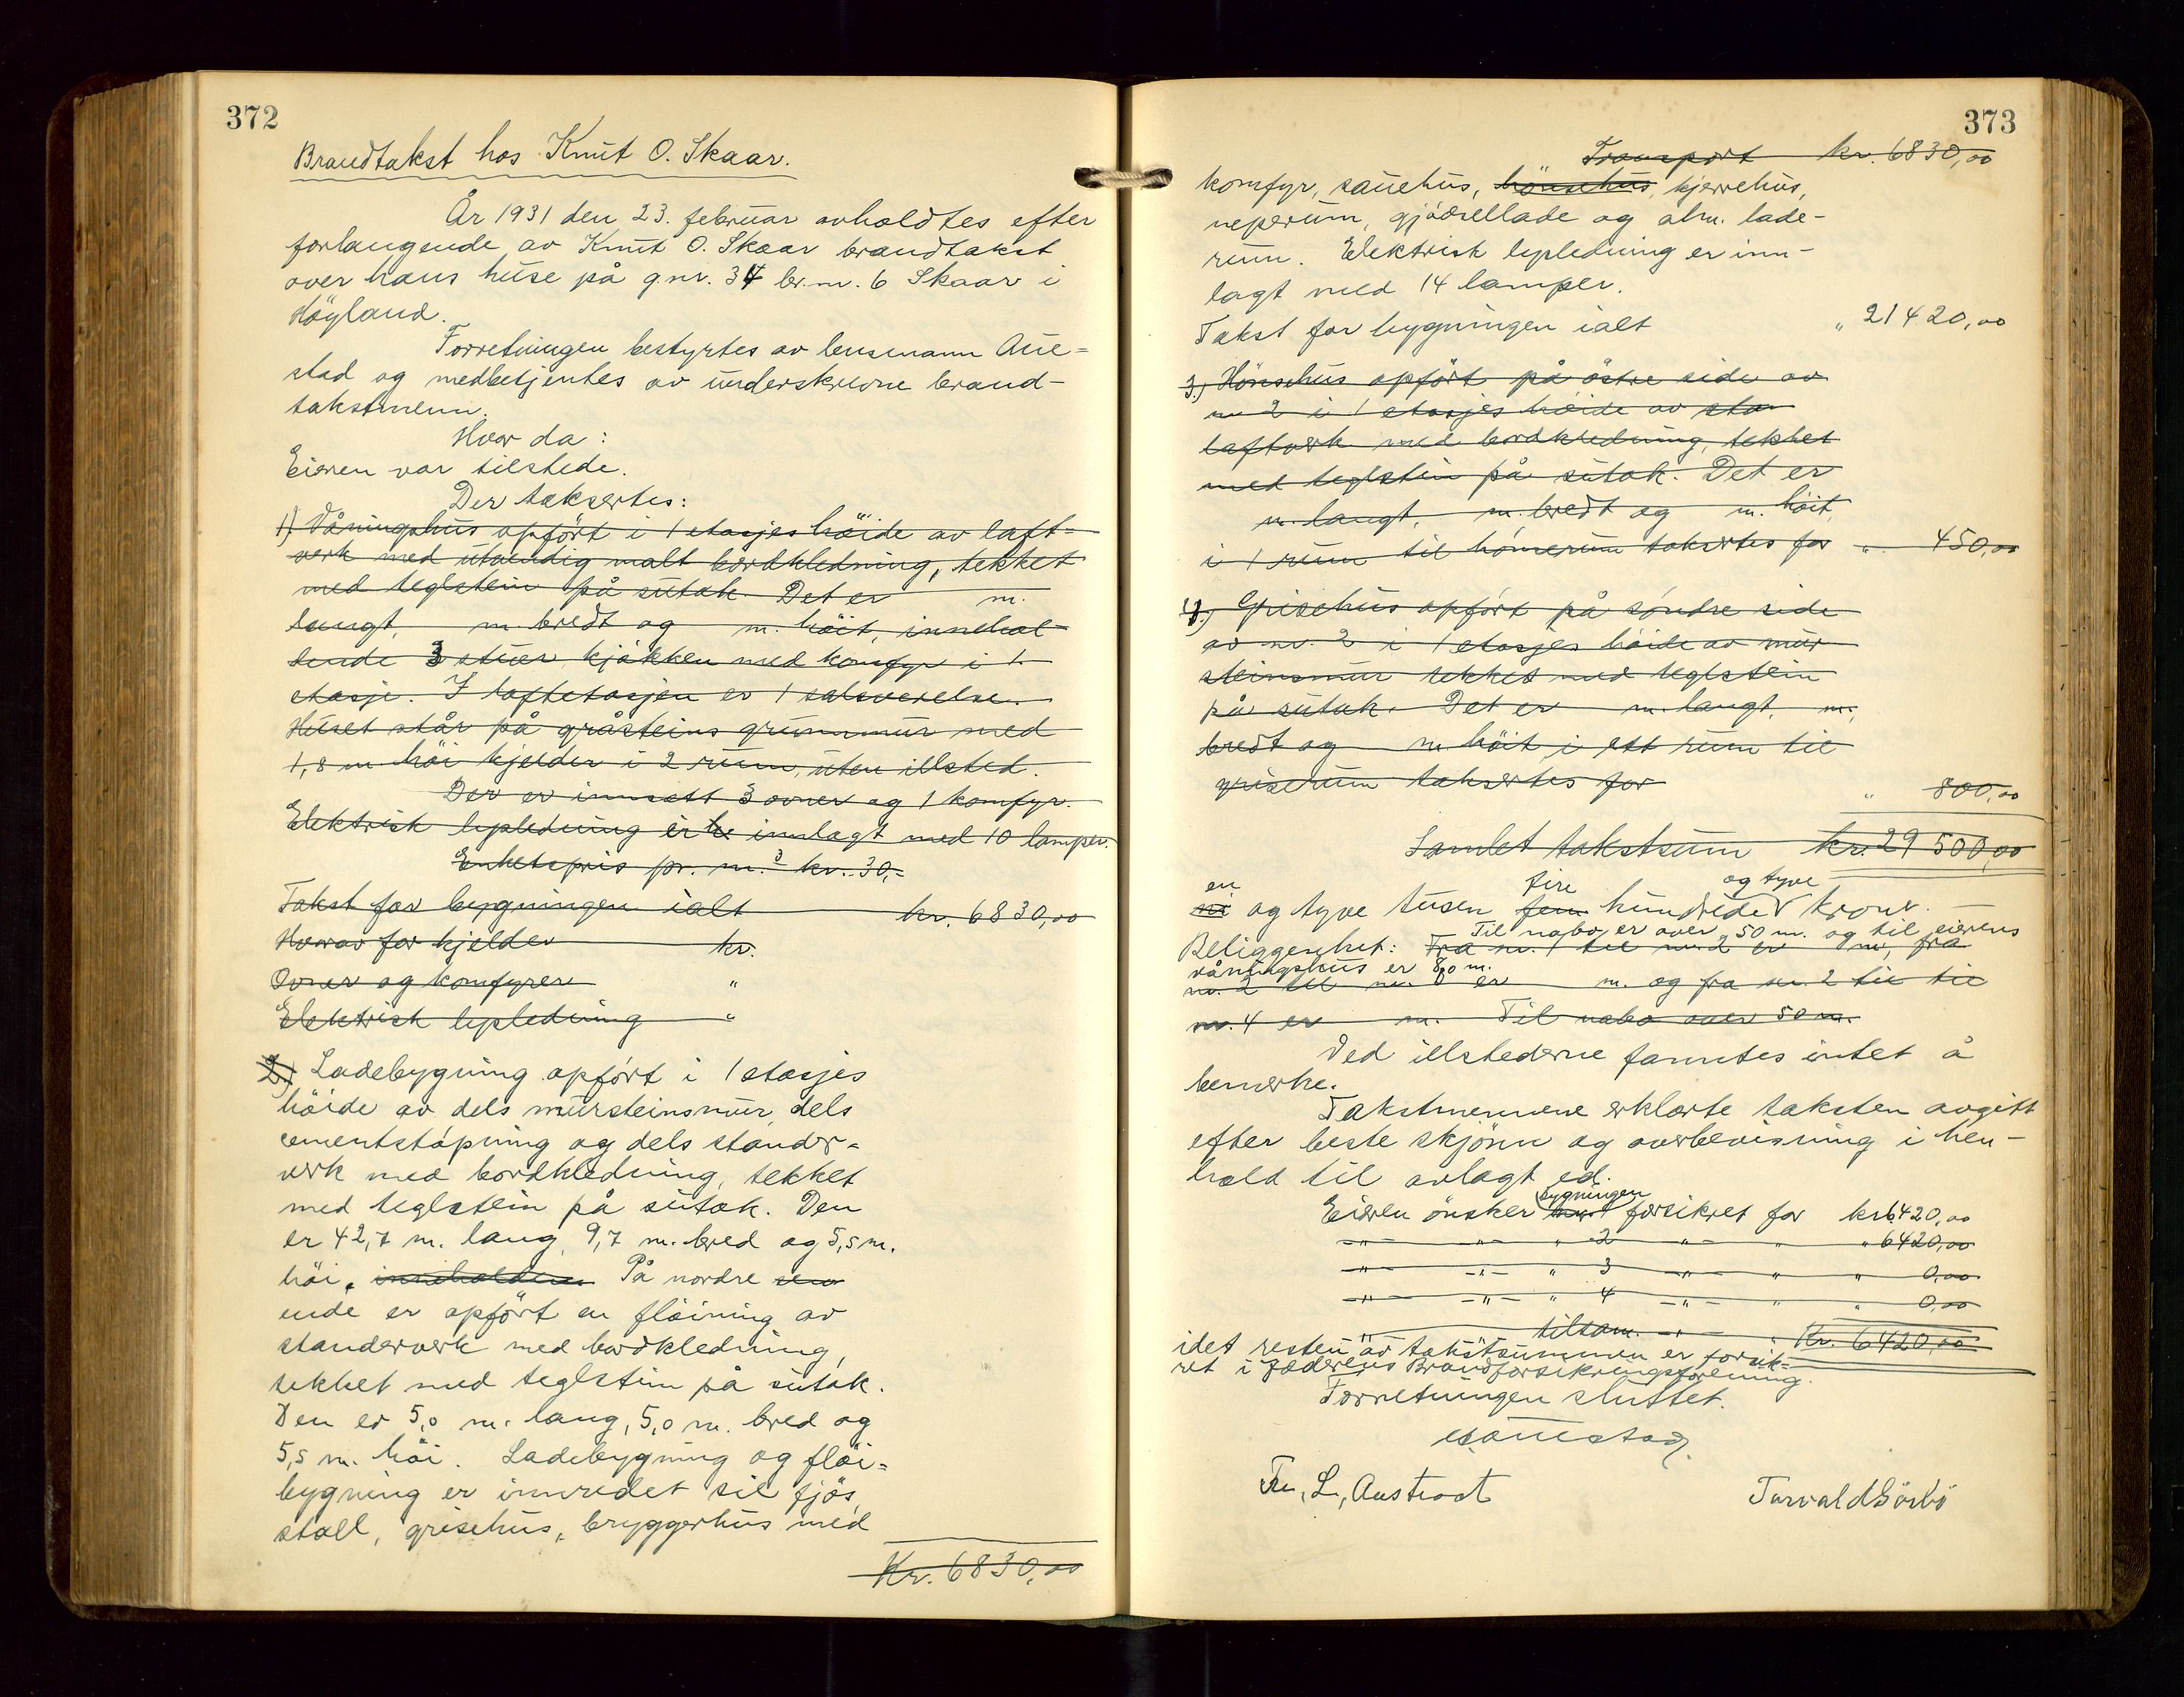 372
Brandtakst hos Knut O. Skaar.
År 1931 den 23. februar avholdtes efter
forlangende av Knut O. Skaar brandtakst
over hans huse på g.nr. 34 br.nr. 6 Skaar i
Høyland.
Forretningen bestyrtes av lensmann Aue-
stad og medbetjentes av underskrevne brand-
takstmenn.
Hvor da:
Eieren var tilstede.
Der taksertes:
1) Våningshus opført i 1 etasjes høide av laft-
verk med utvendig malt bordkledning, tekket
med teglstein på sutak. Det er m.
langt, m. bredt og m. høit, innehol-
dende 3 stuer, kjøkken med komfyr i 1.
etasje. I loftetasjen er 1 salsverelse.
Huset står på gråsteins grunnmur med
1,8 m. høi kjelder i 2 rum, uten illsted.
Der er innsatt 3 ovner og 1 komfyr.
Elektrisk lysledning er innlagt med 10 lamper.
Enhetspris pr. m.³ kr. 30,-
Takst for bygningen ialt kr. 6830,00
Herav for kjelder kr.
Ovner og komfyrer "
Elektrisk lysledning "
2.) Ladebygning opført i 1 etasjes
høide av dels mursteinsmur, dels
cementstøpning og dels stander-
verk med bordkledning, tekket
med teglstein på sutak. Den
er 42,7 m. lang, 9,7 m. bred og 5,5 m.
høi. inneholdene På nordre
ende er opført en fløining av
standerverk med bordkledning,
tekket med teglstein på sutak.
Den er 5,0 m. lang, 5,0 m. bred og
5,5 m. høi. Ladebygning og fløi-
bygning er innredet til fjøs,
stall, grisehus, bryggerhus med
Kr. 6830,00
373
Transport kr. 6830,00
komfyr, sauehus, hønsehus, kjerrehus,
neperum, gjødsellade og alm. lade-
rum. Elektrisk lysledning er inn-
lagt med 14 lamper.
Takst for bygningen ialt " 21420,00
3.) Hønsehus opført på østre side av
nr. 2 i 1 etasjes høide av sta
laftverk med bordkledning, tekket
med teglstein på sutak. Det er
m. langt, m. bredt og m. høit,
i 1 rum til hønserum taksertes for " 450,00
4.) Grisehus opført på søndre side
av nr. 2 i 1 etasjes høide av mur
steinsmur tekket med teglstein
på sutak. Det er m. langt, m.
bredt og m. høit i ett rum til
griserum taksertes for
" 800,00
Samlet takstsum kr. 29 500,00
en fire og tyve
ni og tyve tusen fem hundrede kroner.
Til nabo er over 50 m. og til eierens
Beliggenhet: Fra nr. 1 til nr. 2 er m, fra
våningshus er 8,0 m.
nr. 2 til nr. 3 er m. og fra nr. 2 til til
nr. 4 er m. Til nabo over 50 m.
Ved illstederne fanntes intet å
bemerke.
Takstmennene erklærte taksten avgitt
efter beste skjønn og overbevisning i hen-
hold til avlagt ed.
bygningen
Eieren ønsker forsikret for kr 6420,00
-"- -"- " 2 -"- " " 6420,00
-"- -"- " 3 -"- " " 0,00
-"- -"- " 4 -"- " " 0,00
tilsam. -"- " Kr. 6420,00
idet resten av takstsummen er forsik-
ret i Jæderens Brandforsikringsforening.
Forretningen sluttet.
Fr. L. Austrott
Torvald Sørbø